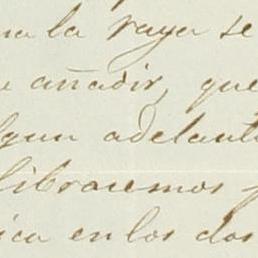 la raya se
añadir, que
adelant
libraremos
en los dos